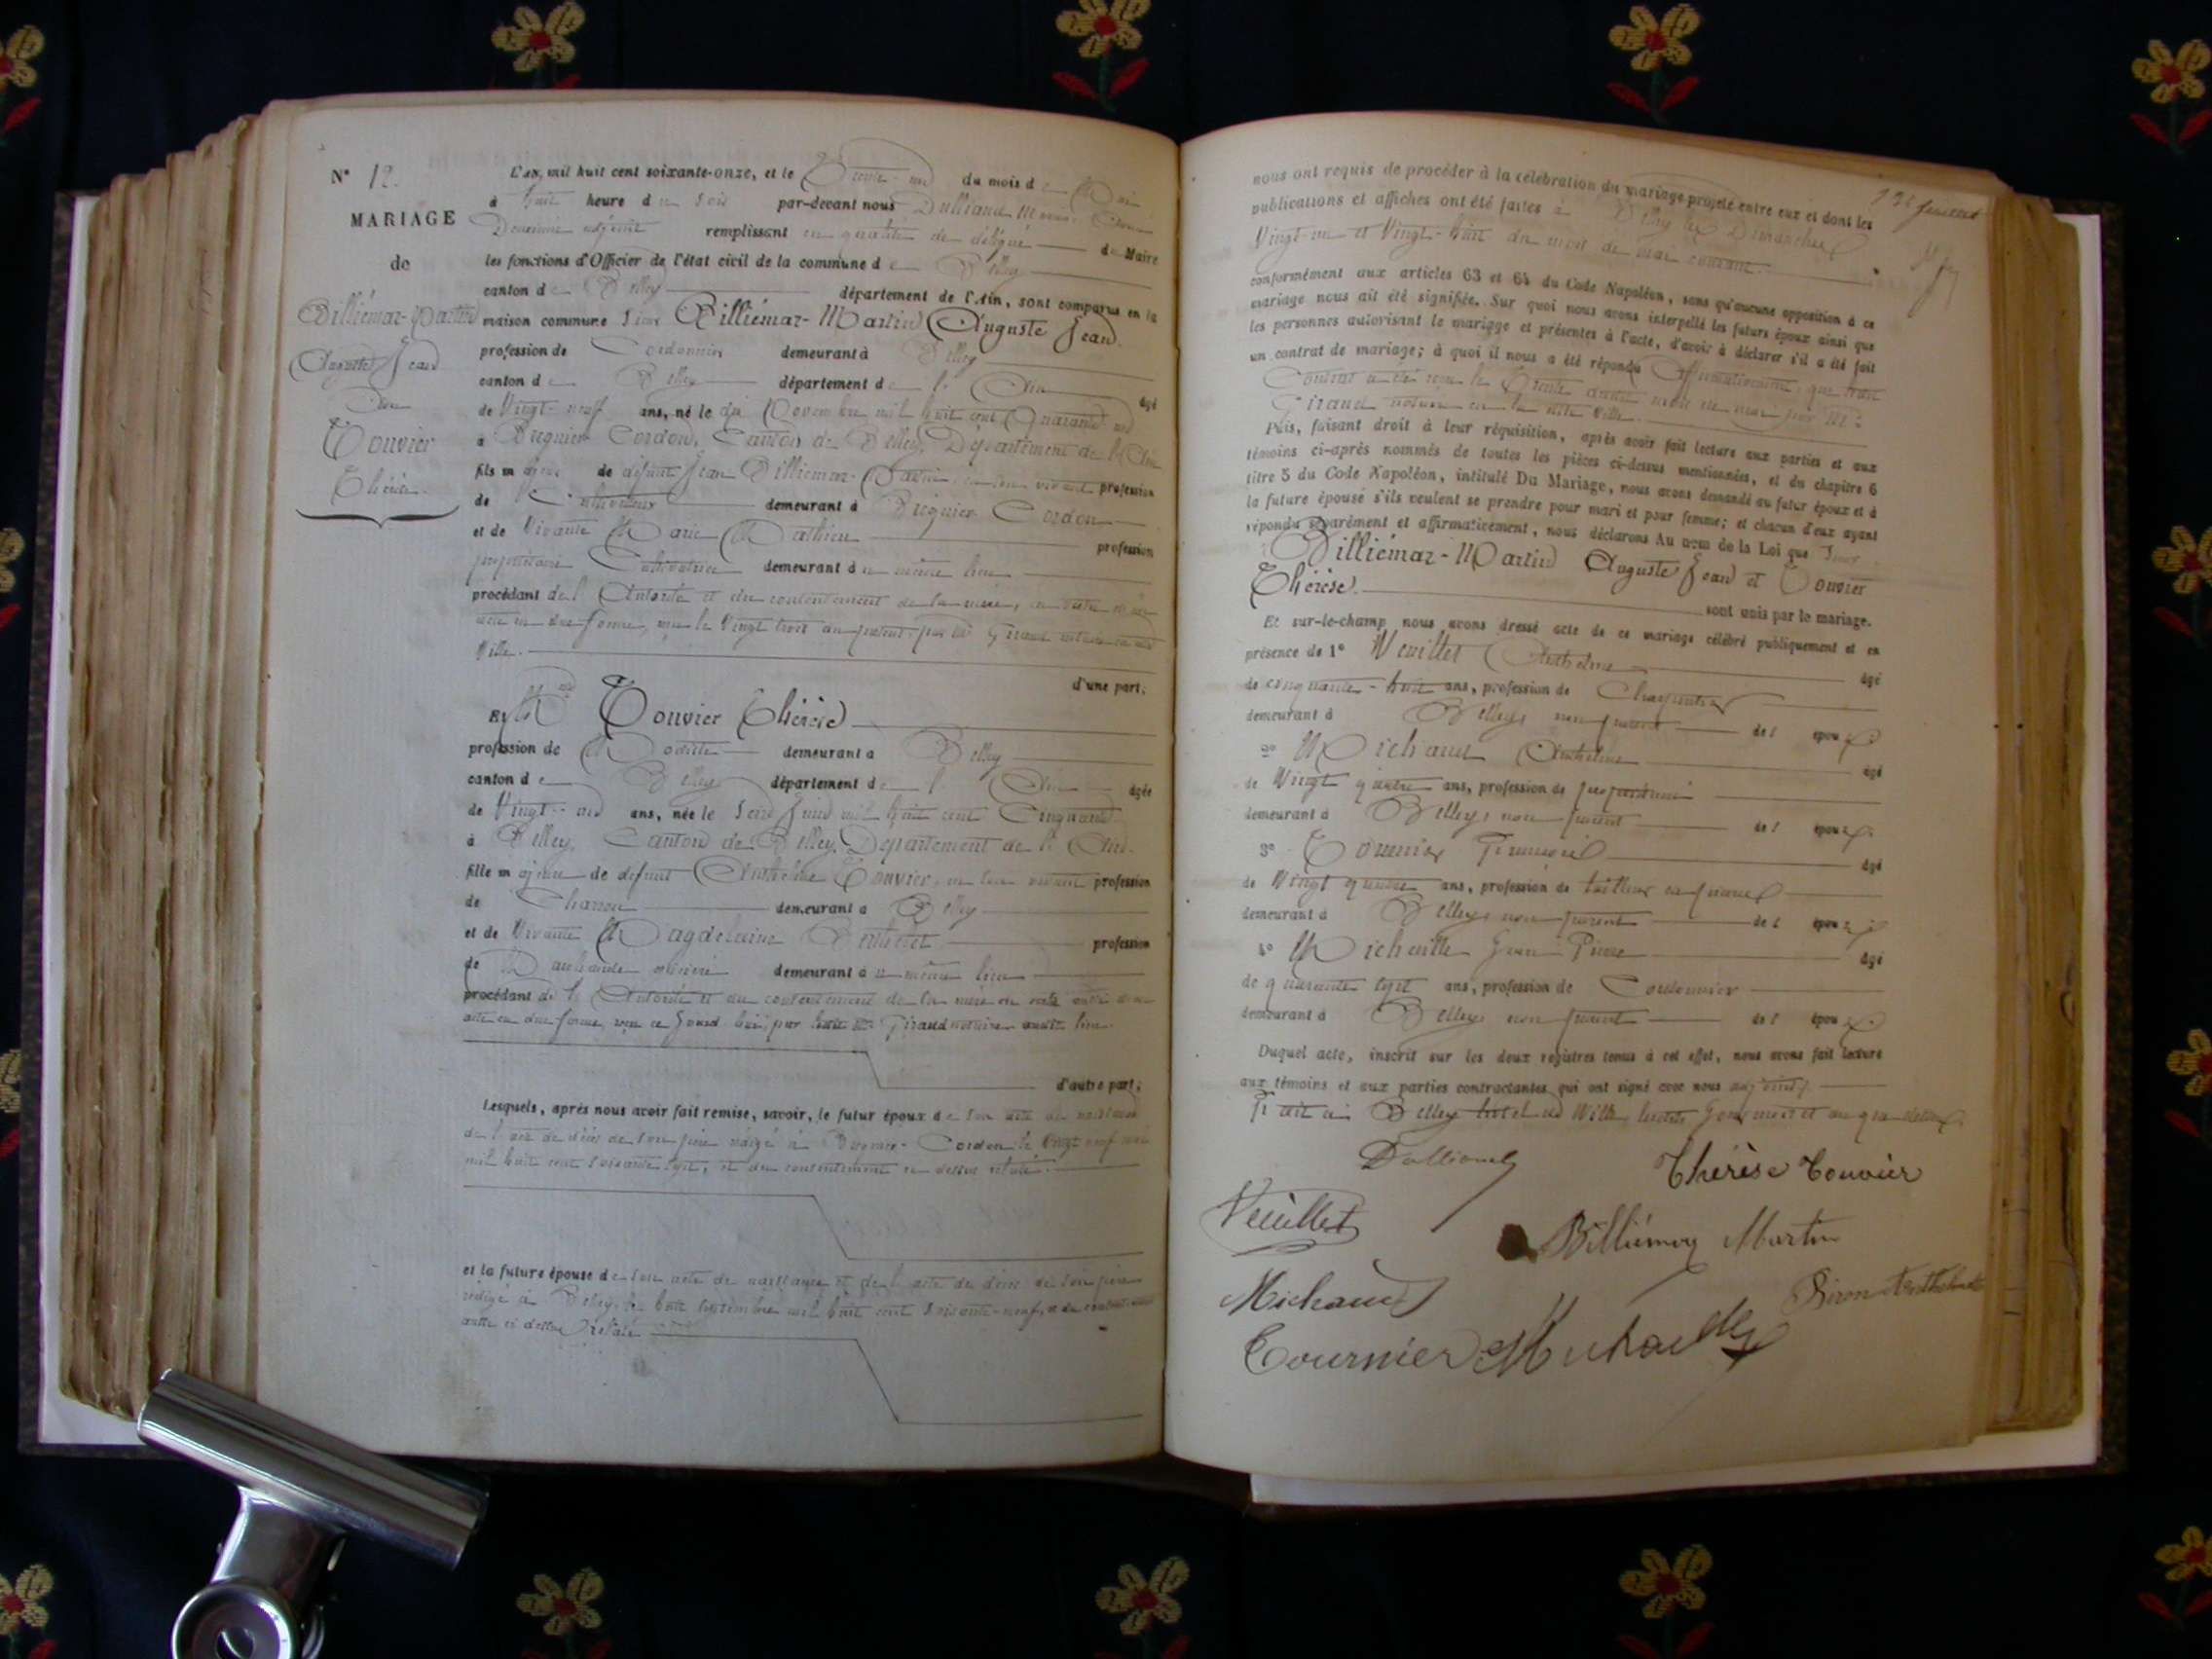 N° 12.
MARIAGE
de
Billiémaz-Martin
Auguste Jean
Touvier
Thérèse
L'an mil huit cent soixante-onze, et le Trente-un du mois de Mai
à huit heure du soir par-devant nous Dulliand
Deuxième adjoint remplissant en qualité de délégué du Maire
les fonctions d'Officier de l'état civil de la commune de Belley
canton de Belley département de l'Ain, sont comparus en la
maison commune sieur Billiémaz-Martin Auguste Jean.
profession de Cordonnier demeurant à Belley
canton de Belley département de l'Ain âgé
de Vingt-neuf ans, né le dix Novembre mil huit cent Quarante un
à Brégnier-Cordon, Canton de Belley, Département de l'Ain
fils majeur de défunt Jean Billiémaz-Martin, en son vivant profession
de Cultivateur demeurant à Brégnier Cordon
et de Vivante Marie Mathieu profession
propriétaire Cultivatrice demeurant au même lieu
procédant de l'Autorité et du consentement de la mère,
acte en due forme, reçu le Vingt trois du présent par Me Giraud notaire
Ville.
d'une part;
Et Touvier Thérèse
profession de Modiste demeurant à Belley
canton de Belley département de l'Ain âgée
de Vingt-un ans, née le seize Juin mil huit cent Cinquante
à Belley, Canton de Belley, Département de l'Ain.
fille majeure de défunt Anthelme Touvier, en son vivant profession
de Charron demeurant à Belley
et de Vivante Magdelaine profession
de Marchande demeurant au même lieu
procédant de l'Autorité et du consentement de la mère
acte en due forme, reçu ce jourd'hui par Me Giraud notaire audit lieu.
d'autre part;
Lesquels, après nous avoir fait remise, savoir, le futur époux de son acte de naissance
de l'acte de décès de son père rédigé à Brégnier-Cordon le Vingt neuf
mil huit cent soixante sept, et du consentement ci dessus relaté.
et la future épouse de son acte de naissance et de l'acte de décès de son père
rédigé à Belley, le huit septembre mil huit cent soixante-neuf, et du
ci dessus Relaté
nous ont requis de procéder à la célébration du mariage projeté entre eux et dont les
publications et affiches ont été faites à Belley les Dimanches
Vingt-un et Vingt-huit du mois de mai courant.
conformément aux articles 63 et 64 du Code Napoléon, sans qu'aucune opposition à ce
mariage nous ait été signifiée. Sur quoi nous avons interpellé les futurs époux ainsi que
les personnes autorisant le mariage et présentes à l'acte, d'avoir à déclarer s'il a été fait
un contrat de mariage; à quoi il nous a été répondu Affirmativement, que
Contrat a été reçu le Trente dudit mois de mai par Me
Giraud notaire en la dite Ville.
Puis, faisant droit à leur réquisition, après avoir fait lecture aux parties et aux
témoins ci-après nommés de toutes les pièces ci-dessus mentionnées, et du chapitre 6
titre 5 du Code Napoléon, intitulé Du Mariage, nous avons demandé au futur époux et à
la future épouse s'ils veulent se prendre pour mari et pour femme; et chacun d'eux ayant
répondu séparément et affirmativement, nous déclarons Au nom de la Loi que sieur
Billiémaz-Martin Auguste Jean et Touvier
Thérèse.
sont unis par le mariage.
Et sur-le-champ nous avons dressé acte de ce mariage célébré publiquement et en
présence de 1° Veuillet Anthelme âgé
de cinquante-huit ans, profession de Charpentier
demeurant à Belley, non parent de l'époux.
2° Michaud Anthelme âgé
de Vingt quatre ans, profession de
demeurant à Belley, non parent de l'époux.
3° Tournier François âgé
de Vingt quatre ans, profession de tailleur en
demeurant à Belley, non parent de l'époux
4° Michaille Jean Pierre âgé
de quarante sept ans, profession de Cordonnier
demeurant à Belley non parent de l'époux.
Duquel acte, inscrit sur les deux registres tenus à cet effet, nous avons fait lecture
aux témoins et aux parties contractantes qui ont signé avec nous adjoint.
Fait à Belley hôtel de Ville, lesdits Jour, mois et an que dessus.
Dulliand
Thérèse Touvier
Veuillet
Billiémaz Martin
Michaud
Tournier
Michaille